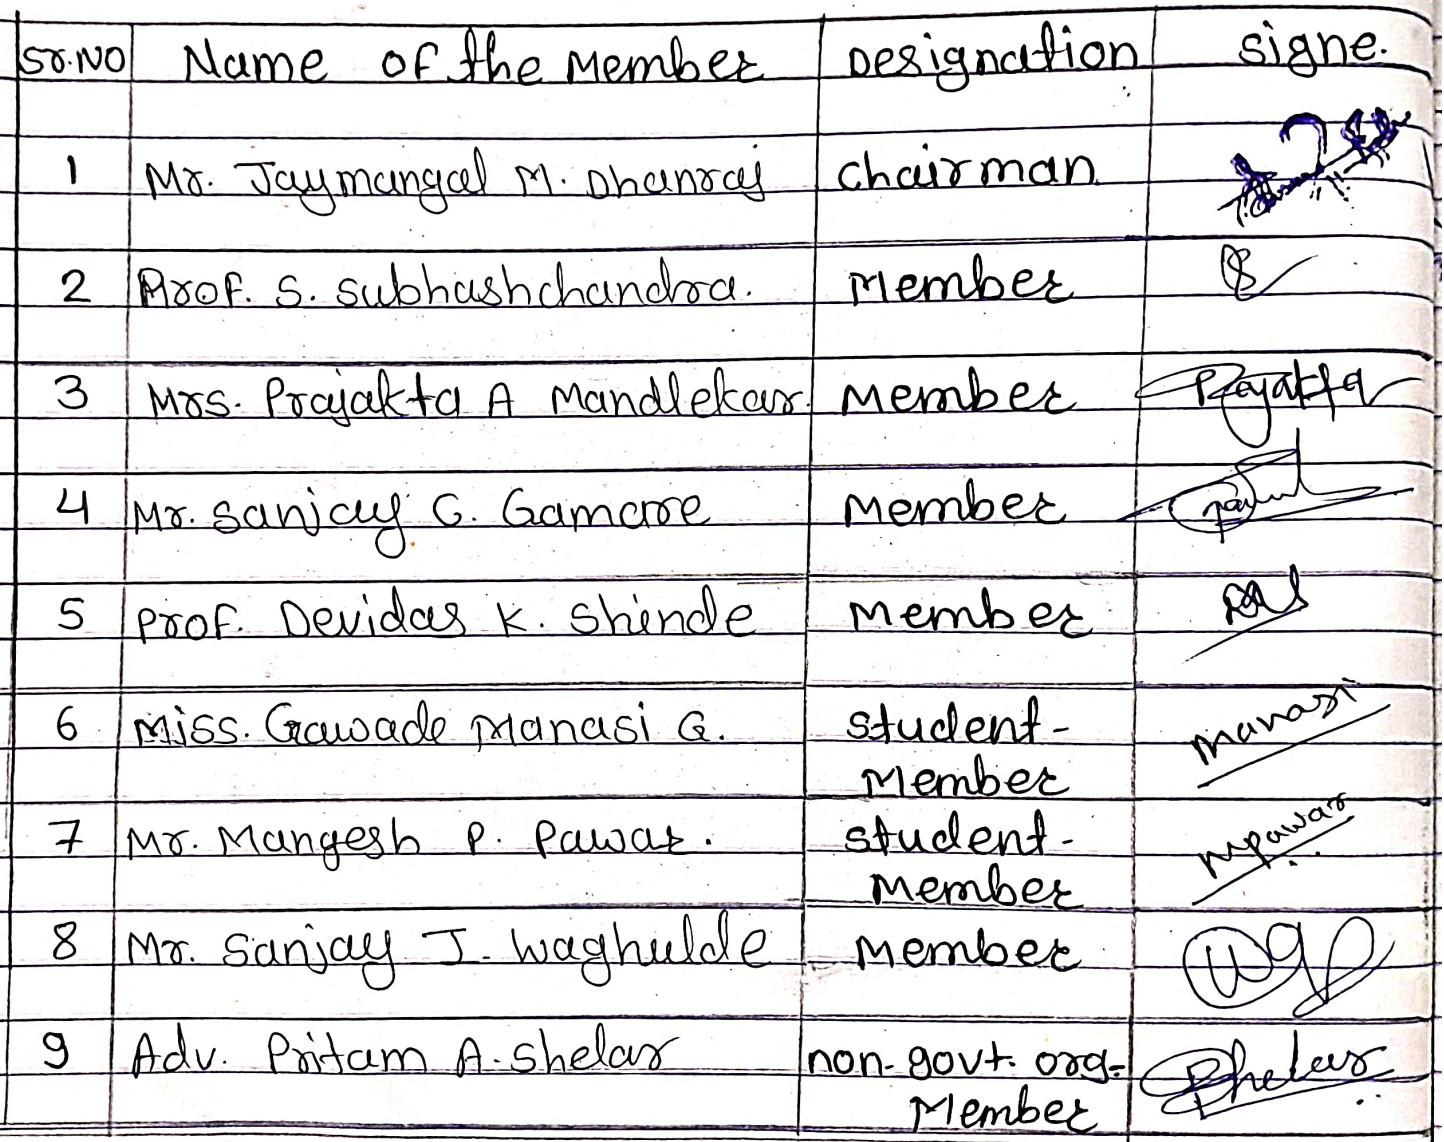 Sr.No Name of the Member Designation Signe.
1 Mr. Jaymangal M. Dhanraj Chairman
2 Prof. S. Subhashchandra. Member
3 Mrs. Prajakta A Mandlekar. Member Prajakta
4 Mr. Sanjay G. Gamare Member
5 Prof. Devidas K. Shinde Member
6 Miss. Gawade Manasi G. Student- Manasi
Member
7 Mr. Mangesh P. Pawar. Student- MPawar
Member
8 Mr. Sanjay J. Waghulde Member
9 Adv. Pritam A. Shelar non-govt. org- Shelar
Member